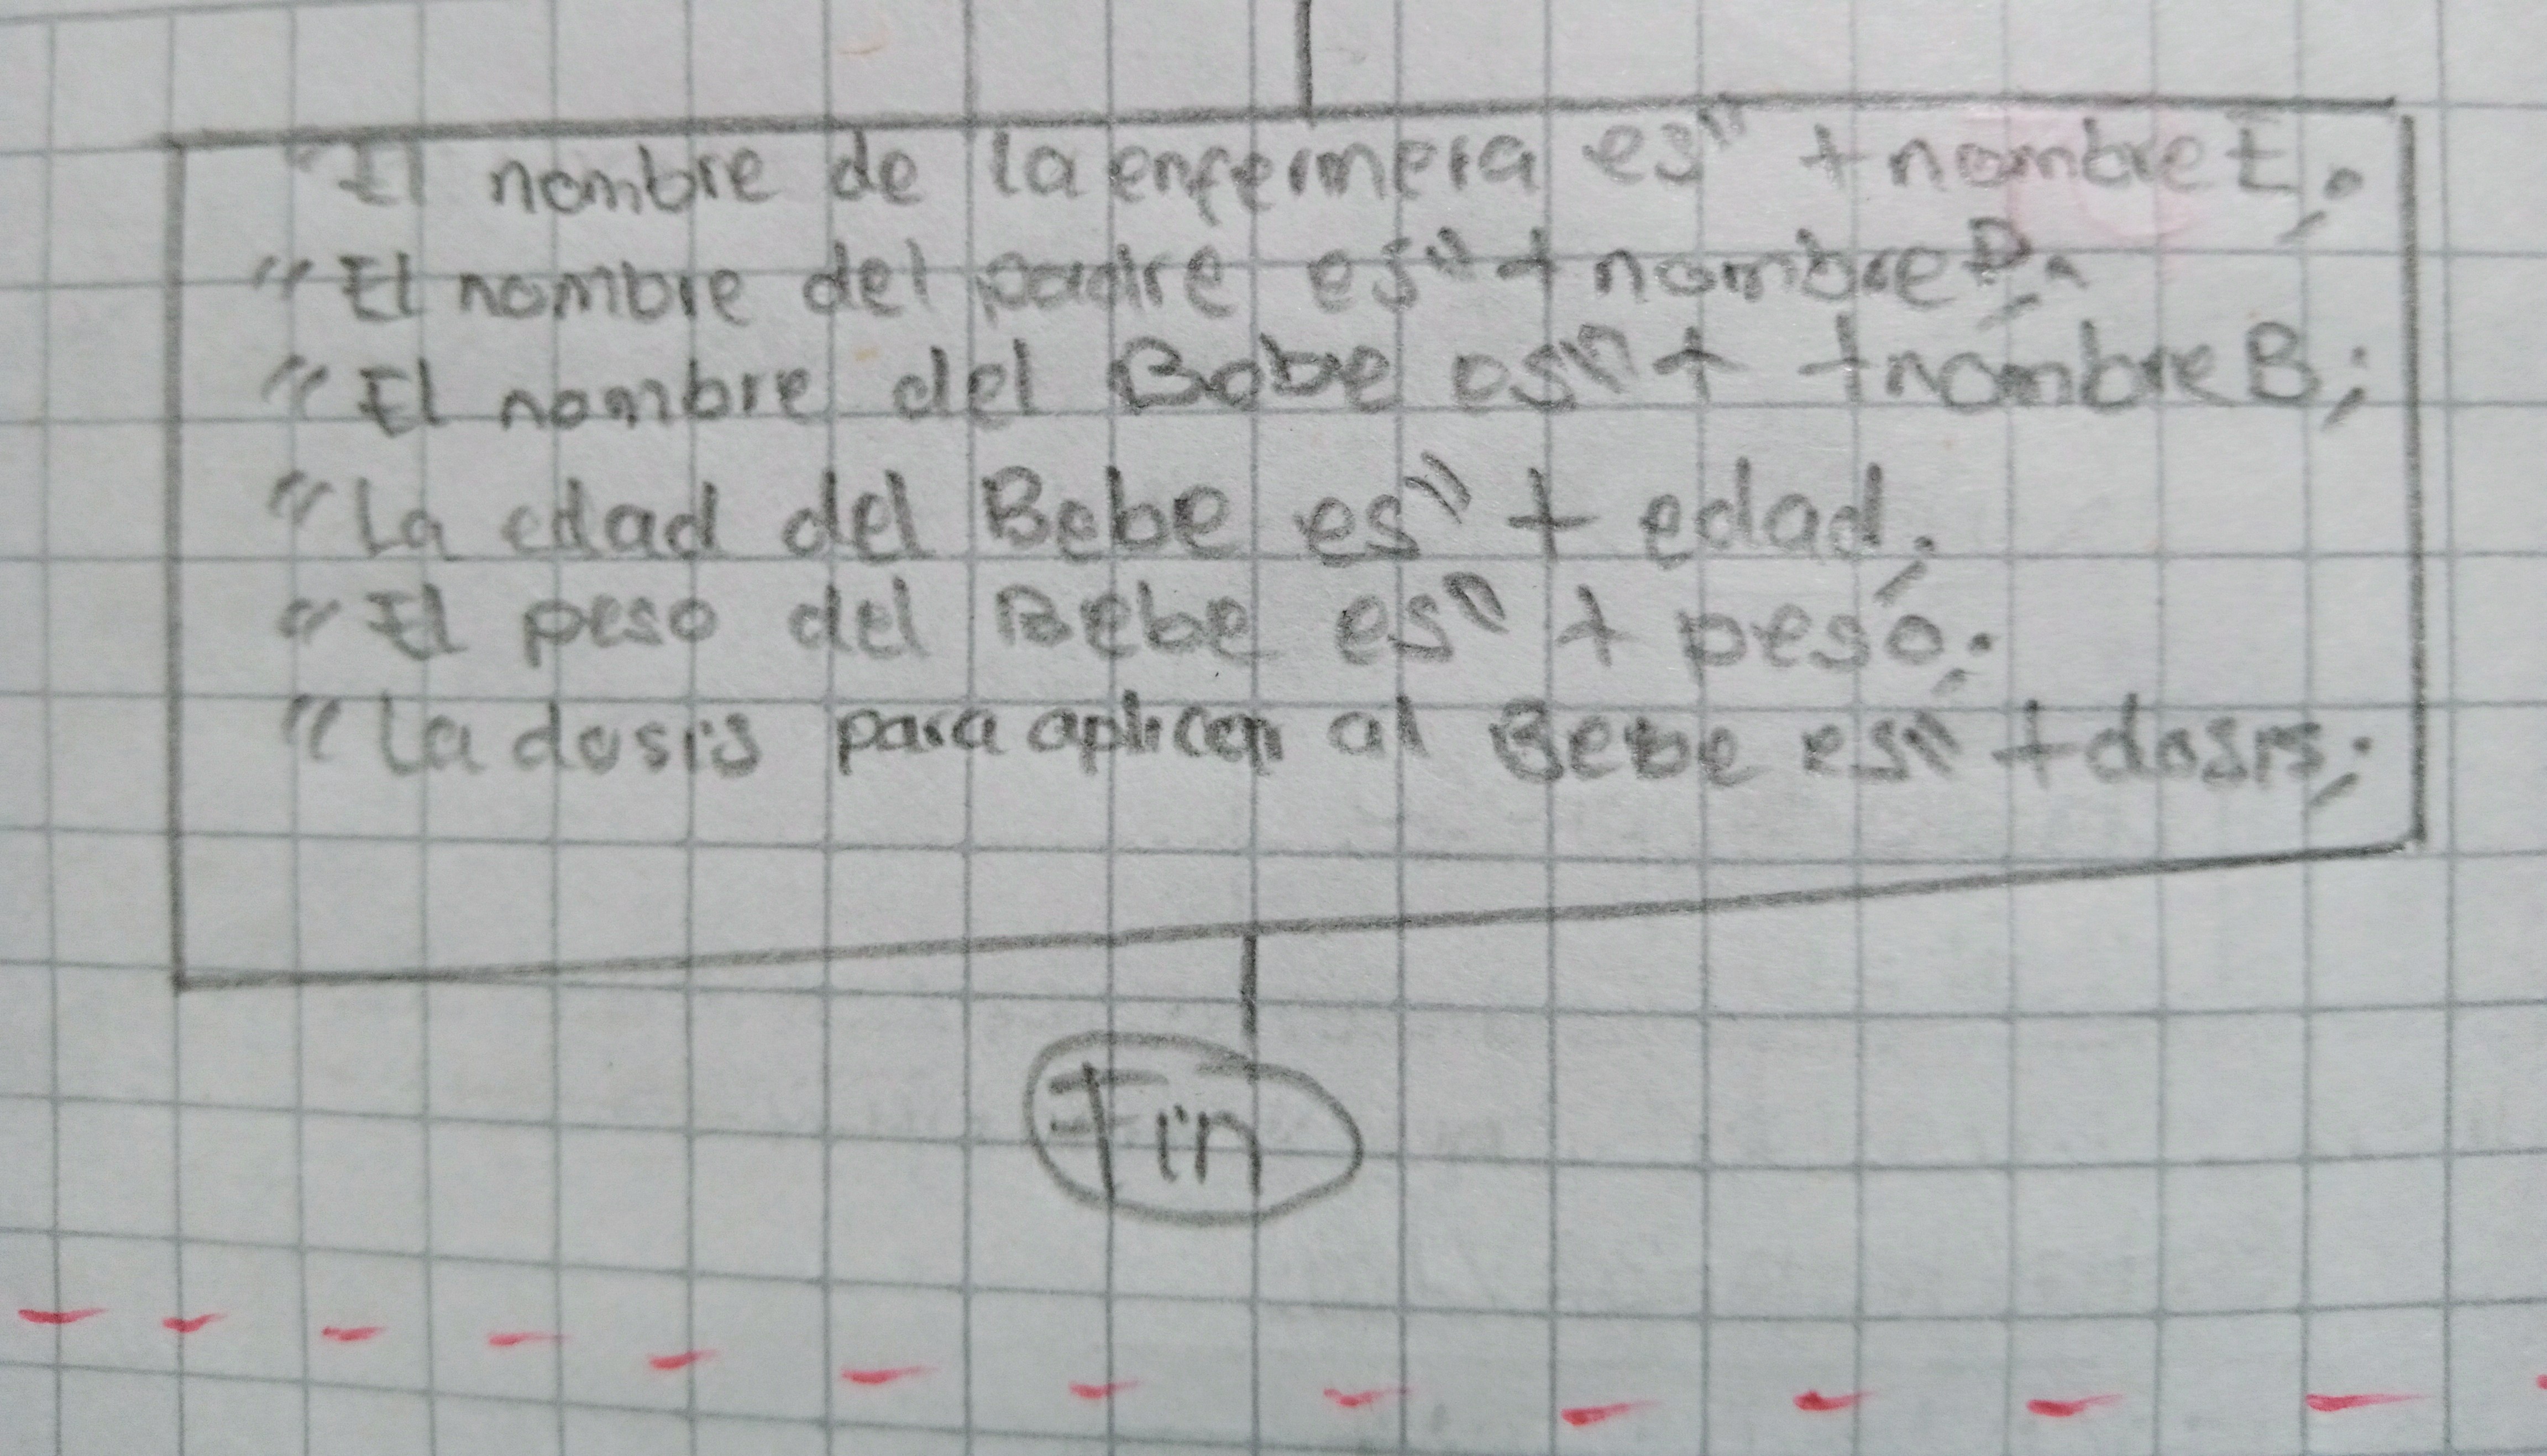 "El nombre de la enfermera es" + nombreE;
"El nombre del padre es" + nombreP;
"El nombre del Bebe es" + +nombreB;
"La edad del Bebe es" + edad;
"El peso del Bebe es" + peso;
"la dosis para aplicar al Bebe es" + dosis;
Fin